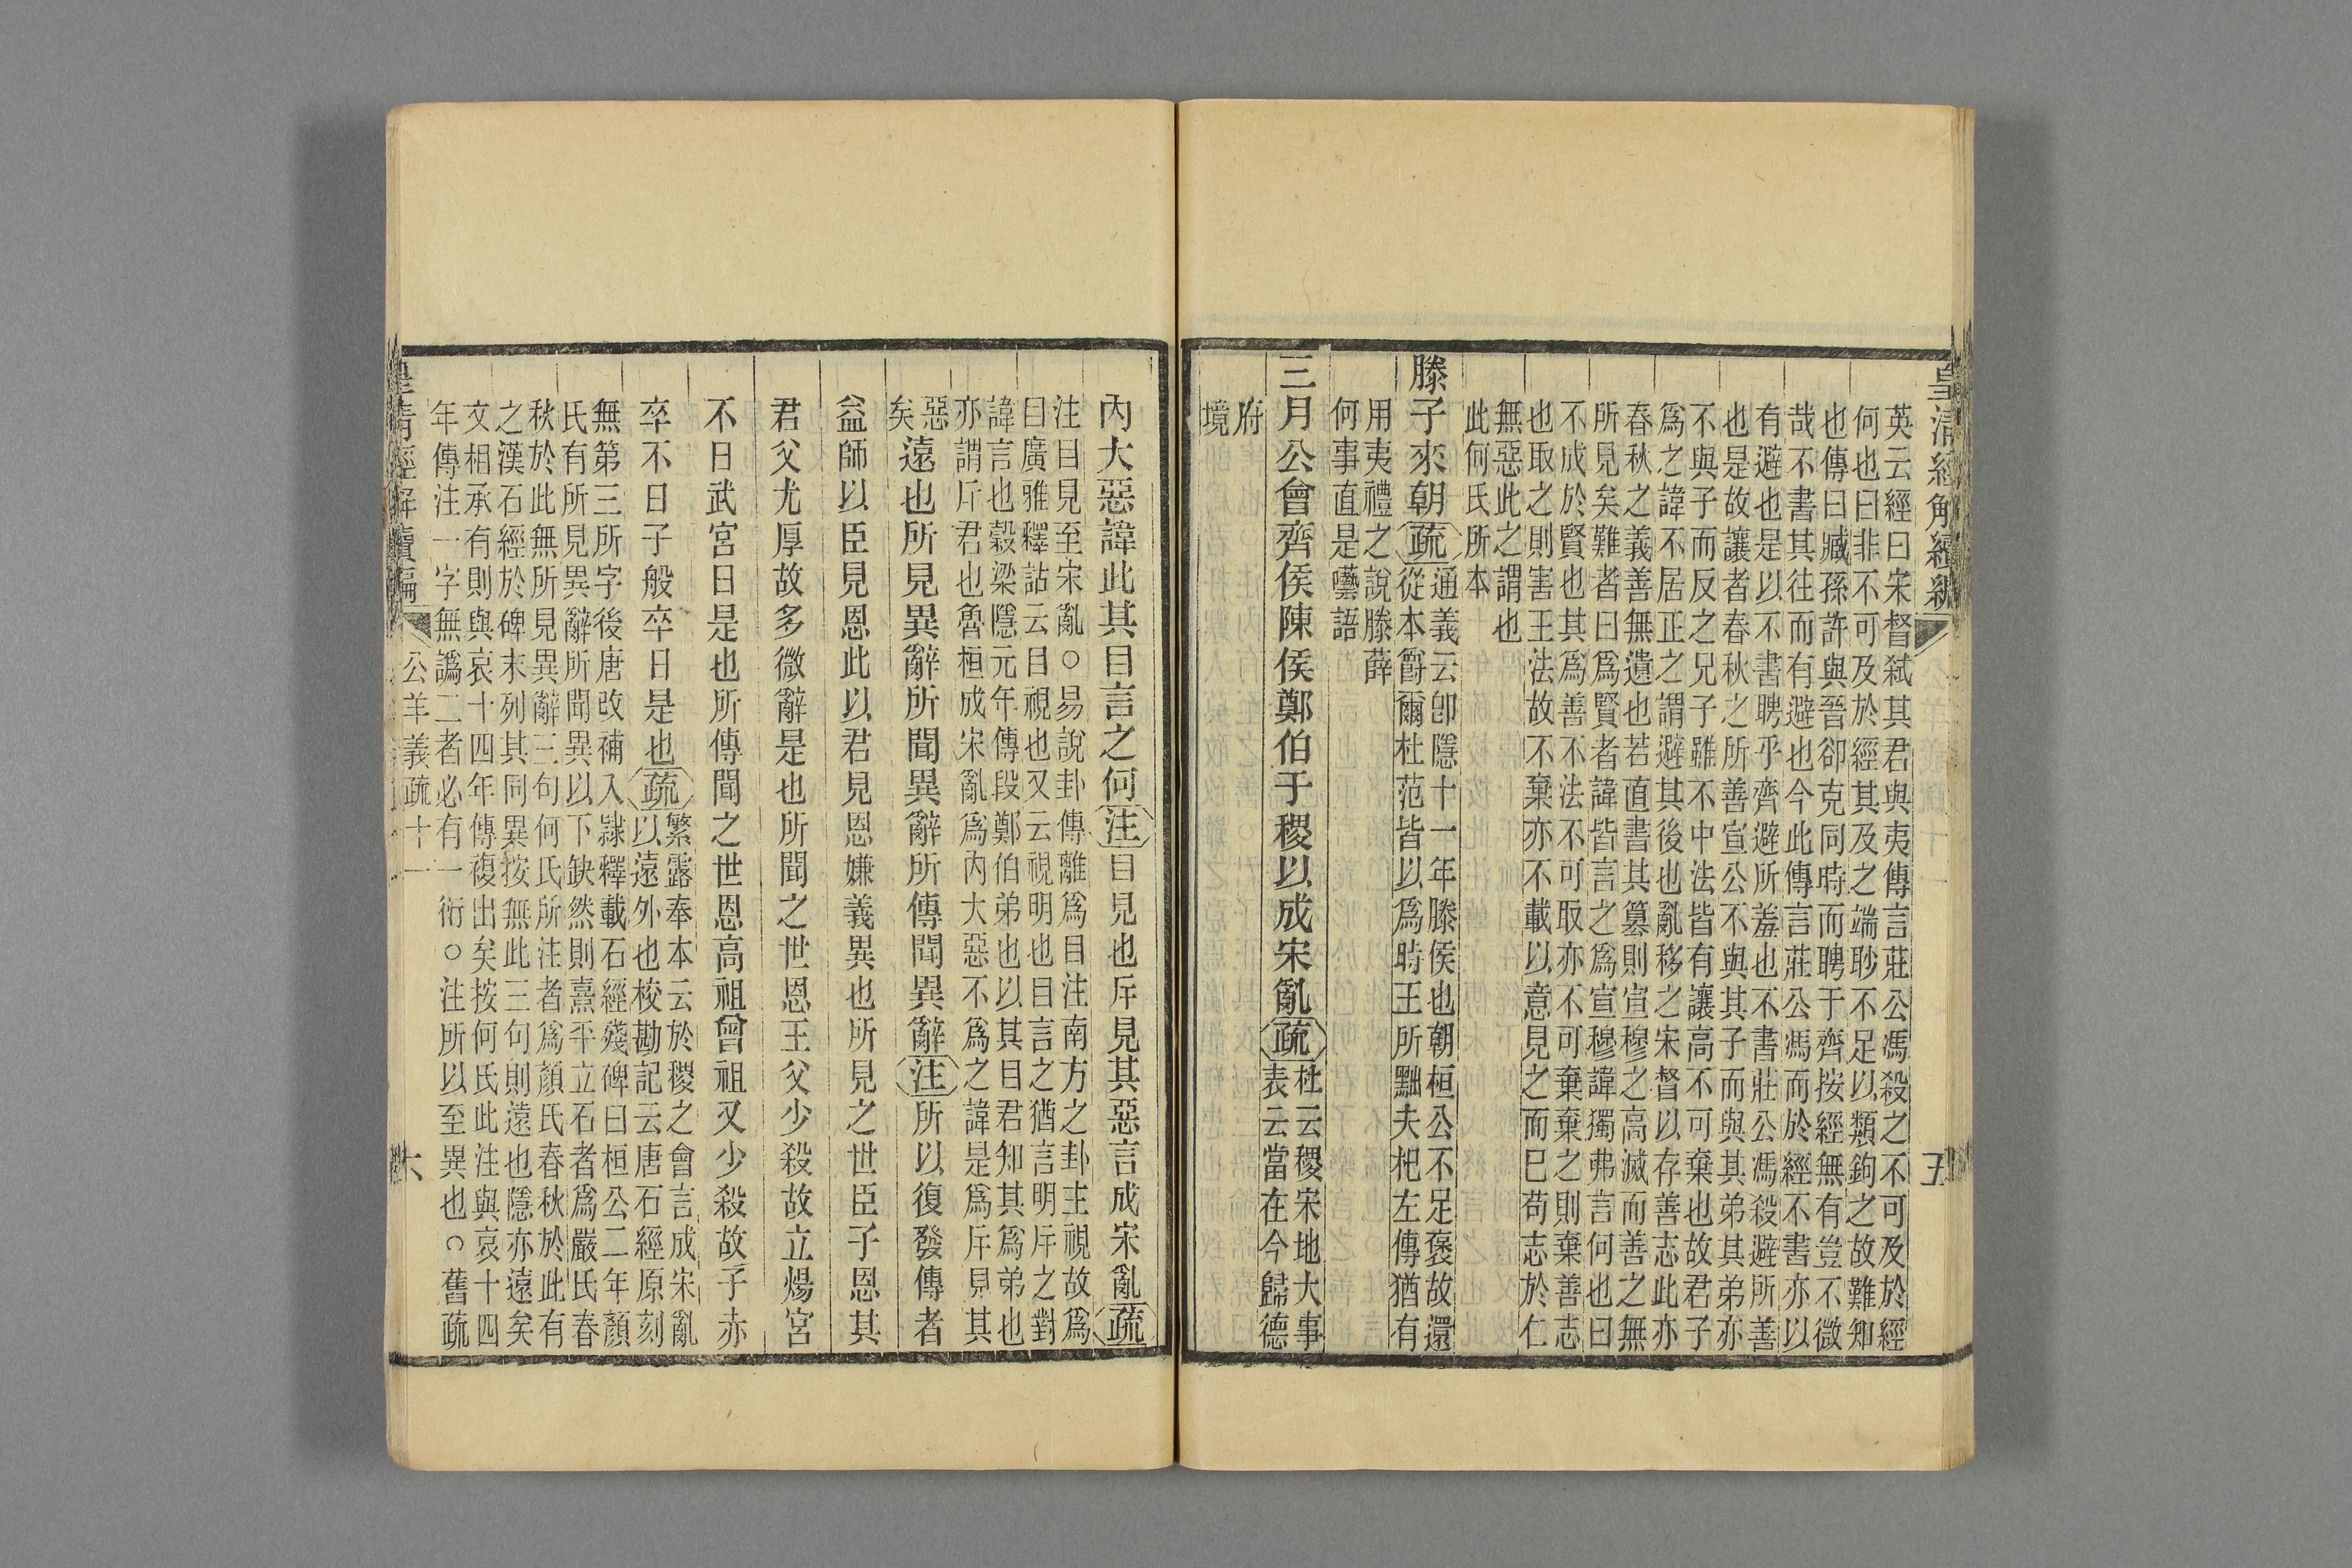 皇清經解續編
五
英云經曰宋督弒其君與夷傳言莊公馮殺之不可及於經
何也曰非不可及於經其及之端眇不足以類鉤之故難知
也傳曰臧孫許與晉卻克同時而聘于齊按經無有豈不微
哉不書其往而有避也今此傳言莊公馮而於經不書亦以
有避也是以不書聘乎齊避所羞也不書莊公馮殺避所善
也是故讓者春秋之所善宣公不與其子而與其弟其弟亦
不與子而反之兄子雖不中法皆有讓高不可棄也故君子
爲之諱不居正之謂避其後也亂移之宋督以存善志此亦
春秋之義善無遺也若直書其篡則宣穆之高滅而善之無
所見矣難者曰爲賢者諱皆言之爲宣穆諱獨弗言何也曰
不成於賢也其爲善不法不可取亦不可棄棄之則棄善志
也取之則害王法故不棄亦不載以意見之而巳苟志於仁
無惡此之謂也
此何氏所本
滕子來朝疏通義云卽隱十一年滕侯也朝桓公不足褒故還
從本爵爾杜范皆以爲時王所黜夫杞左傳猶有
用夷禮之說滕薛
何事直是囈語
三月公會齊侯陳侯鄭伯于稷以成宋亂疏杜云稷宋地大事
表云當在今歸德
府
境
內大惡諱此其目言之何注目見也斥見其惡言成宋亂疏
注目見至宋亂○易說卦傳離爲目注南方之卦主視故爲
目廣雅釋詁云目視也又云視明也目言之猶言明斥之對
諱言也穀梁隱元年傳段鄭伯弟也以其目君知其爲弟也
亦謂斥君也魯桓成宋亂爲內大惡不爲之諱是爲斥見其
惡
矣遠也所見異辭所聞異辭所傳聞異辭注所以復發傳者
益師以臣見恩此以君見恩嫌義異也所見之世臣子恩其
君父尤厚故多微辭是也所聞之世恩王父少殺故立煬宮
不日武宮日是也所傳聞之世恩高祖曾祖又少殺故子赤
卒不日子般卒日是也疏繁露奉本云於稷之會言成宋亂
以遠外也校勘記云唐石經原刻
無第三所字後唐改補入隸釋載石經殘碑曰桓公二年顏
氏有所見異辭所聞異以下缺然則熹平立石者爲嚴氏春
秋於此無所見異辭三句何氏所注者爲顏氏春秋於此有
之漢石經於碑末列其同異按無此三句則遠也隱亦遠矣
文相承有則與哀十四年傳複出矣按何氏此注與哀十四
年傳注一字無譌二者必有一衍○注所以至異也○舊疏
皇清經解續編
公羊義疏十一
六